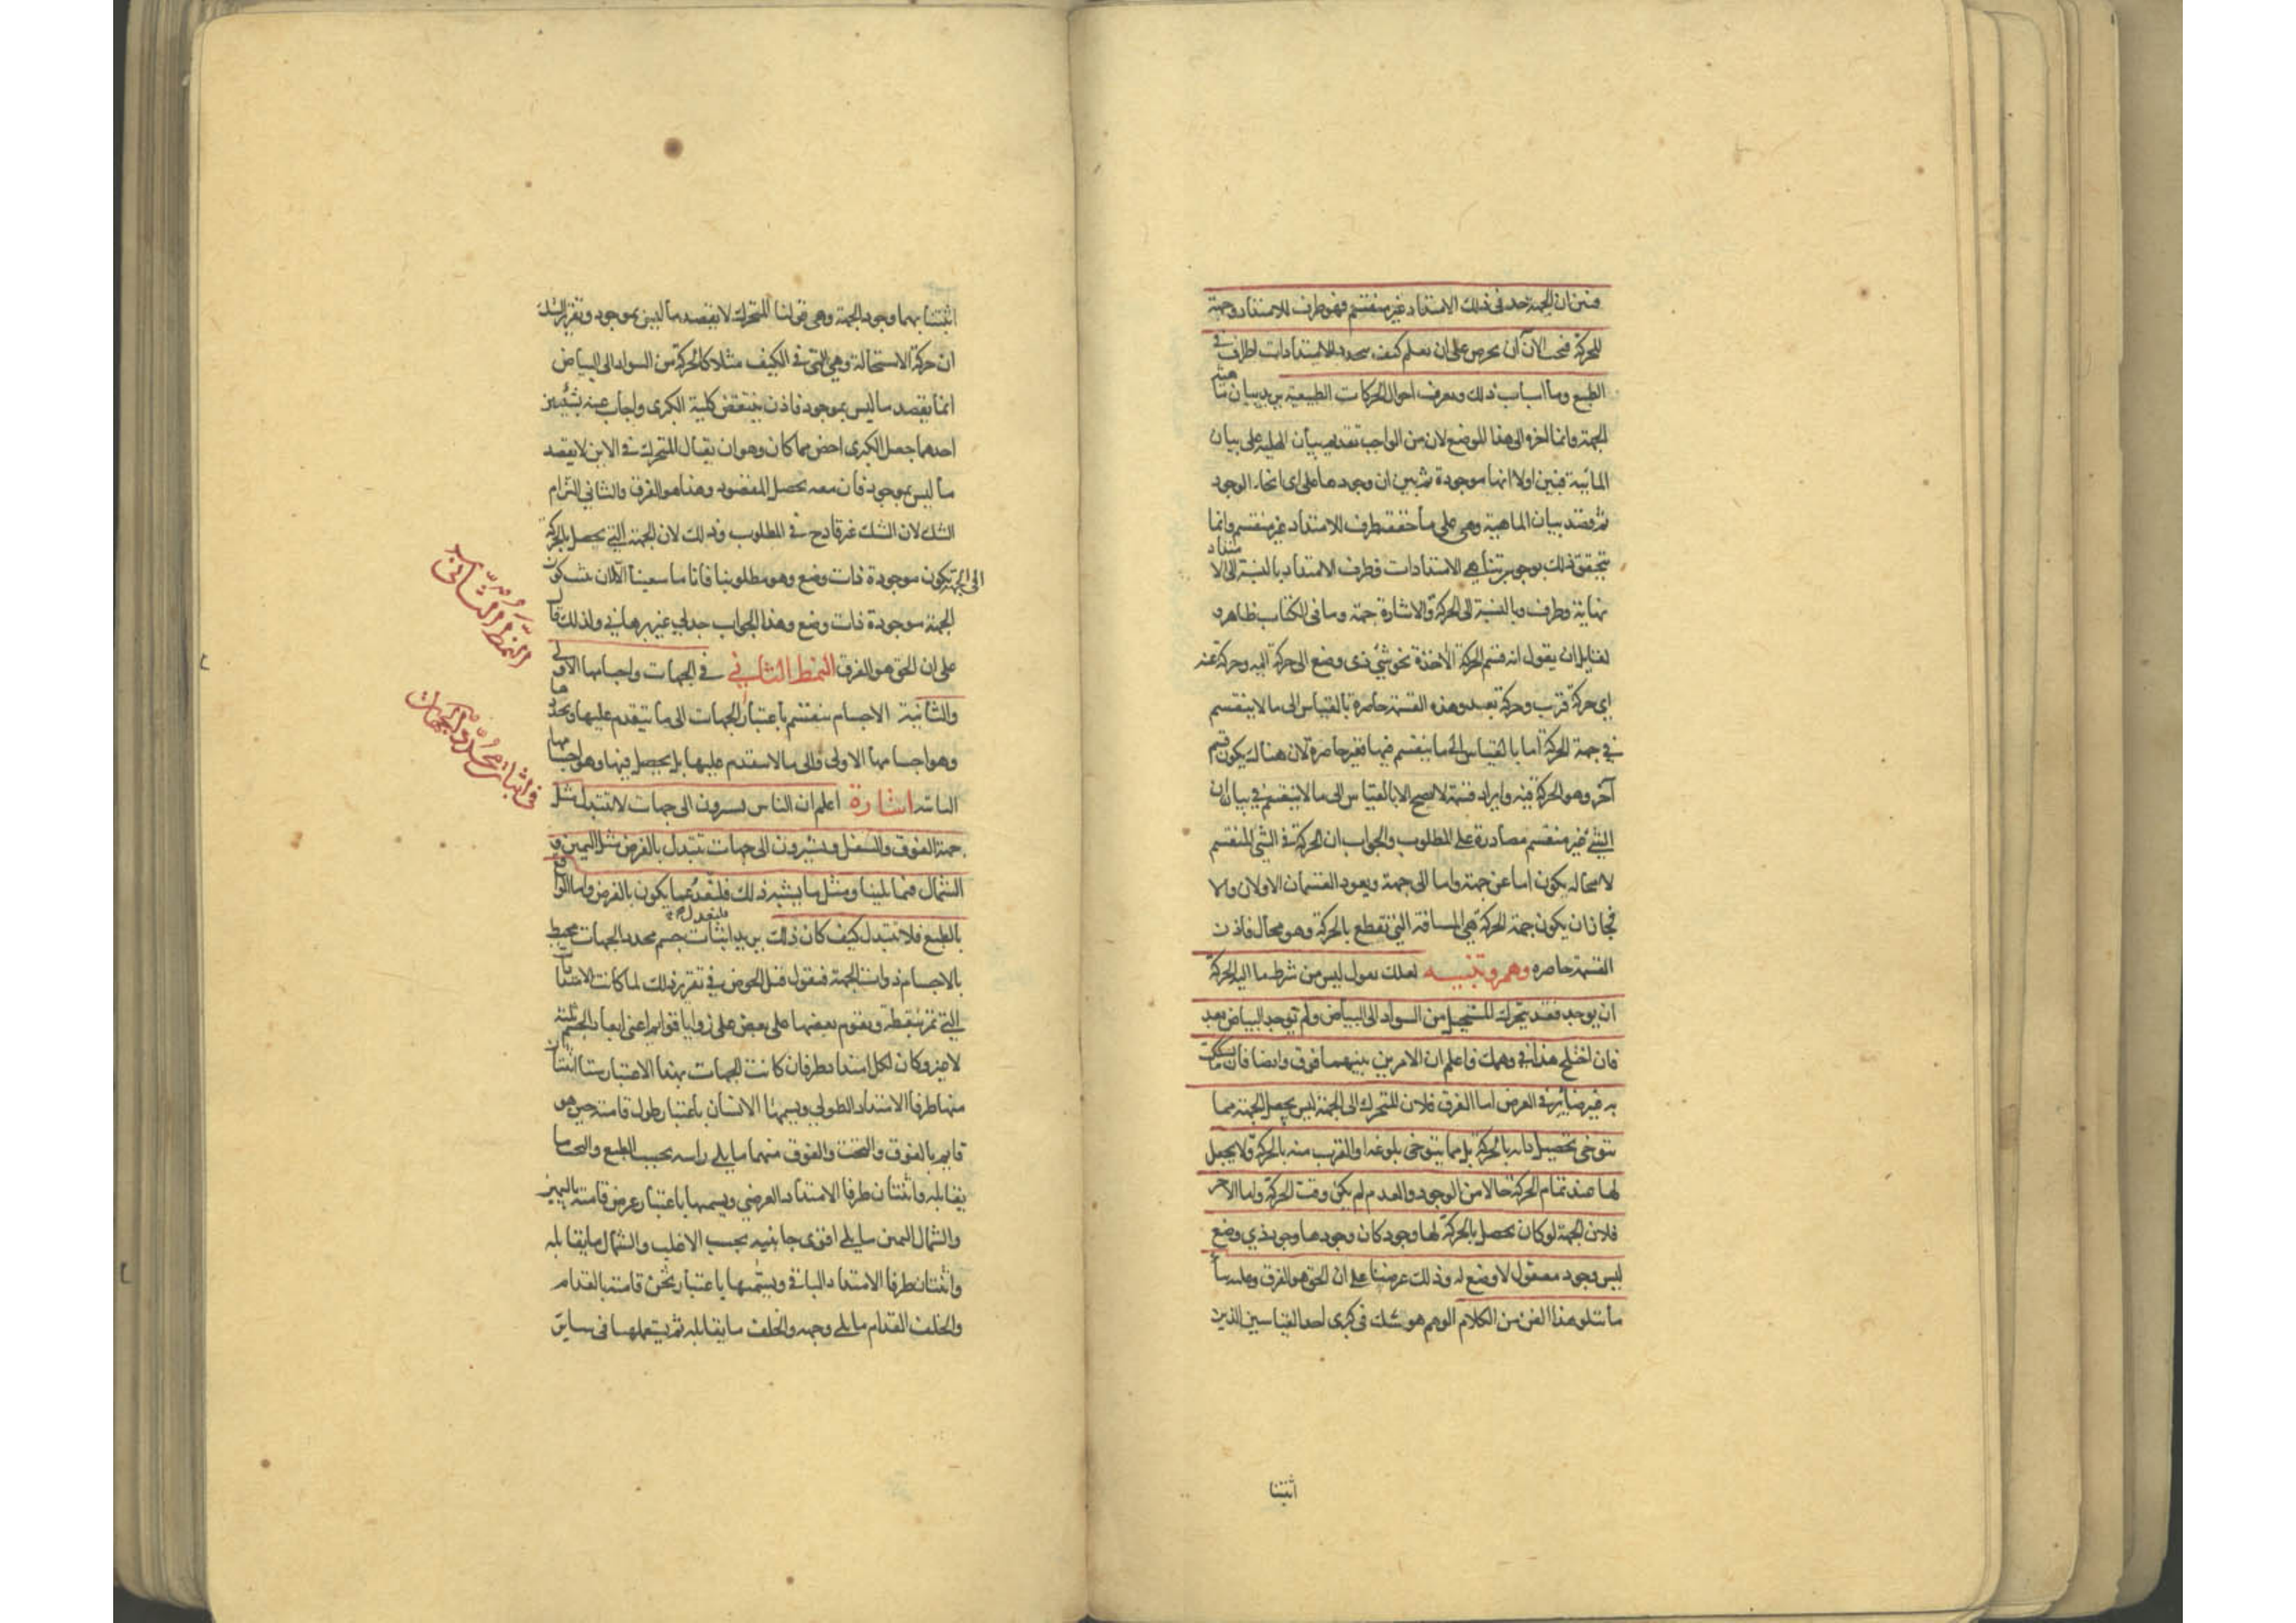 فتبين ان الجهة حد في ذلك الامتداد غير منقسم فهو طرف للامتداد وجهة
للحركة فيجب الآن ان تحرص على ان تعلم كيف يتحدد للامتدادات اطراف في
الطبع وما اسباب ذلك وتعرف احوال الحركات الطبيعية يريد بيان ماهية
الجهة وانما اخره الى هذا الموضع لان من الواجب تقديم بيان الهلية على بيان
المائية فبين اولا انها موجودة ثم بين ان وجودها على اى انحاء الوجود
ثم قصد بيان الماهية وهي على ما حققه طرف للامتداد غير منقسم وانما
تحقق ذلك بوجوب تناهي الامتدادات فطرف الامتداد بالنسبة الى الامتداد
نهاية وطرف وبالنسبة الى الحركة والاشارة جهة وما في الكتاب ظاهر و
لقايل ان يقول انه قسم الحركة الآخذة نحو شئ ذى وضع الى حركة اليه وحركة عنه
اي حركة قرب وحركة بعد وهذه القسمة حاصرة بالقياس الى ما لا ينقسم
في جهة الحركة اما بالقياس الى ما ينقسم فيها فغير حاصرة لان هناك يكون قسم
آخر وهو الحركة فيه وايراد قسمة لا تصح الا بالقياس الى ما لا ينقسم في بيان ان
الشئ غير منقسم مصادرة على المطلوب والجواب ان الحركة في الشئ المنقسم
لا محالة يكون اما عن جهة واما الى جهة ويعود القسمان الاولان والا
فجاز ان يكون جهة الحركة هي المسافة التي تقطع بالحركة وهو محال فاذن
القسمة حاصره وهم وتنبيه لعلك تقول ليس من شرط ما اليه الحركة
ان يوجد فقد يتحرك المستحيل من السواد الى البياض ولم يوجد البياض بعد
فان اختلج هذا في وهمك فاعلم ان الامرين بينهما فرق وايضا فان ما تشككت
به غير ضائر في الغرض اما الفرق فلان المتحرك الى الجهة ليس يجعل الجهة مما
يتوخى تحصيل ذاته بالحركة بل مما يتوخى بلوغه او القرب منه بالحركة ولا يجعل
لها عند تمام الحركة حالا من الوجود والعدم لم يكن وقت الحركة واما الآخر
فلان الجهة لو كان يحصل بالحركة لها وجود كان وجودها وجود ذي وضع
ليس وجود معقول لا وضع له وذلك غرضنا على ان الحق هو الفرق وعليه بنا
ما يتلو هذا الفن من الكلام الوهم هو شك في كبرى احد القياسين الذين
اثبتنا
اثبتنا بهما وجود الجهة وهي قولنا المتحرك لا يقصد ما ليس بموجود وتقرير الشك
ان حركة الاستحالة وهي التي في الكيف مثلا كالحركة من السواد الى البياض
انما يقصد ما ليس بموجود فاذن ينتقض كلية الكبرى واجاب عنه بشيئين
احدهما جعل الكبرى اخص مما كان وهو ان يقال المتحرك في الاين لا يقصد
ما ليس بموجود فان معه يحصل المقصود وهذا هو الفرق والثاني التزام
الشك لان الشك غير قادح في المطلوب وذلك لان الجهة التي يحصل بالحركة
الى الجهة يكون موجودة ذات وضع وهو مطلوبنا فانا ما سعينا الا لان يكون
الجهة موجودة ذات وضع وهذا الجواب جدلي غير برهاني ولذلك قال
على ان الحق هو الفرق النمط الثاني في الجهات واجسامها الاولى
والثانية الاجسام ينقسم باعتبار الجهات الى ما يتقدم عليها ويحددها
وهو اجسامها الاولى والى ما لا يتقدم عليها بل يحصل فيها وهو اجسامها
الثانية اشارة اعلم ان الناس يشيرون الى جهات لا تتبدل مثل
جهة الفوق والسفل ويشيرون الى جهات تتبدل بالفرض مثل اليمين و
الشمال فيما يلينا ومثل ما يشبه ذلك فلنعد عما يكون بالفرض واما الواقع
بالطبع فلا تتبدل كيف كان ذلك يريد اثبات جسم محدد الجهات محيط
بالاجسام ذوات الجهة فنقول قبل الخوض في تقرير ذلك لما كانت الامتدادات
التي تمر بنقطة ويقوم بعضها على بعض على زوايا قوايم اعني ابعاد الجسم ثلثة
لا غير وكان لكل امتداد طرفان كانت الجهات بهذا الاعتبار ستا اثنتان
منها طرفا الامتداد الطولي ويسميهما الانسان باعتبار طول قامته حين هو
قايم بالفوق والتحت والفوق منهما ما يلي راسه بحسب الطبع والتحت ما
يقابله واثنتان طرفا الامتداد العرضي ويسميهما باعتبار عرض قامته باليمين
والشمال اليمين ما يلي اقوى جانبيه بحسب الاغلب والشمال ما يقابله
واثنتان طرفا الامتداد الباقي ويسميهما باعتبار ثخن قامته بالقدام
والخلف القدام ما يلي وجهه والخلف ما يقابله ثم يستعملها في ساير
النمط الثاني
في اثبات محدد الجهات